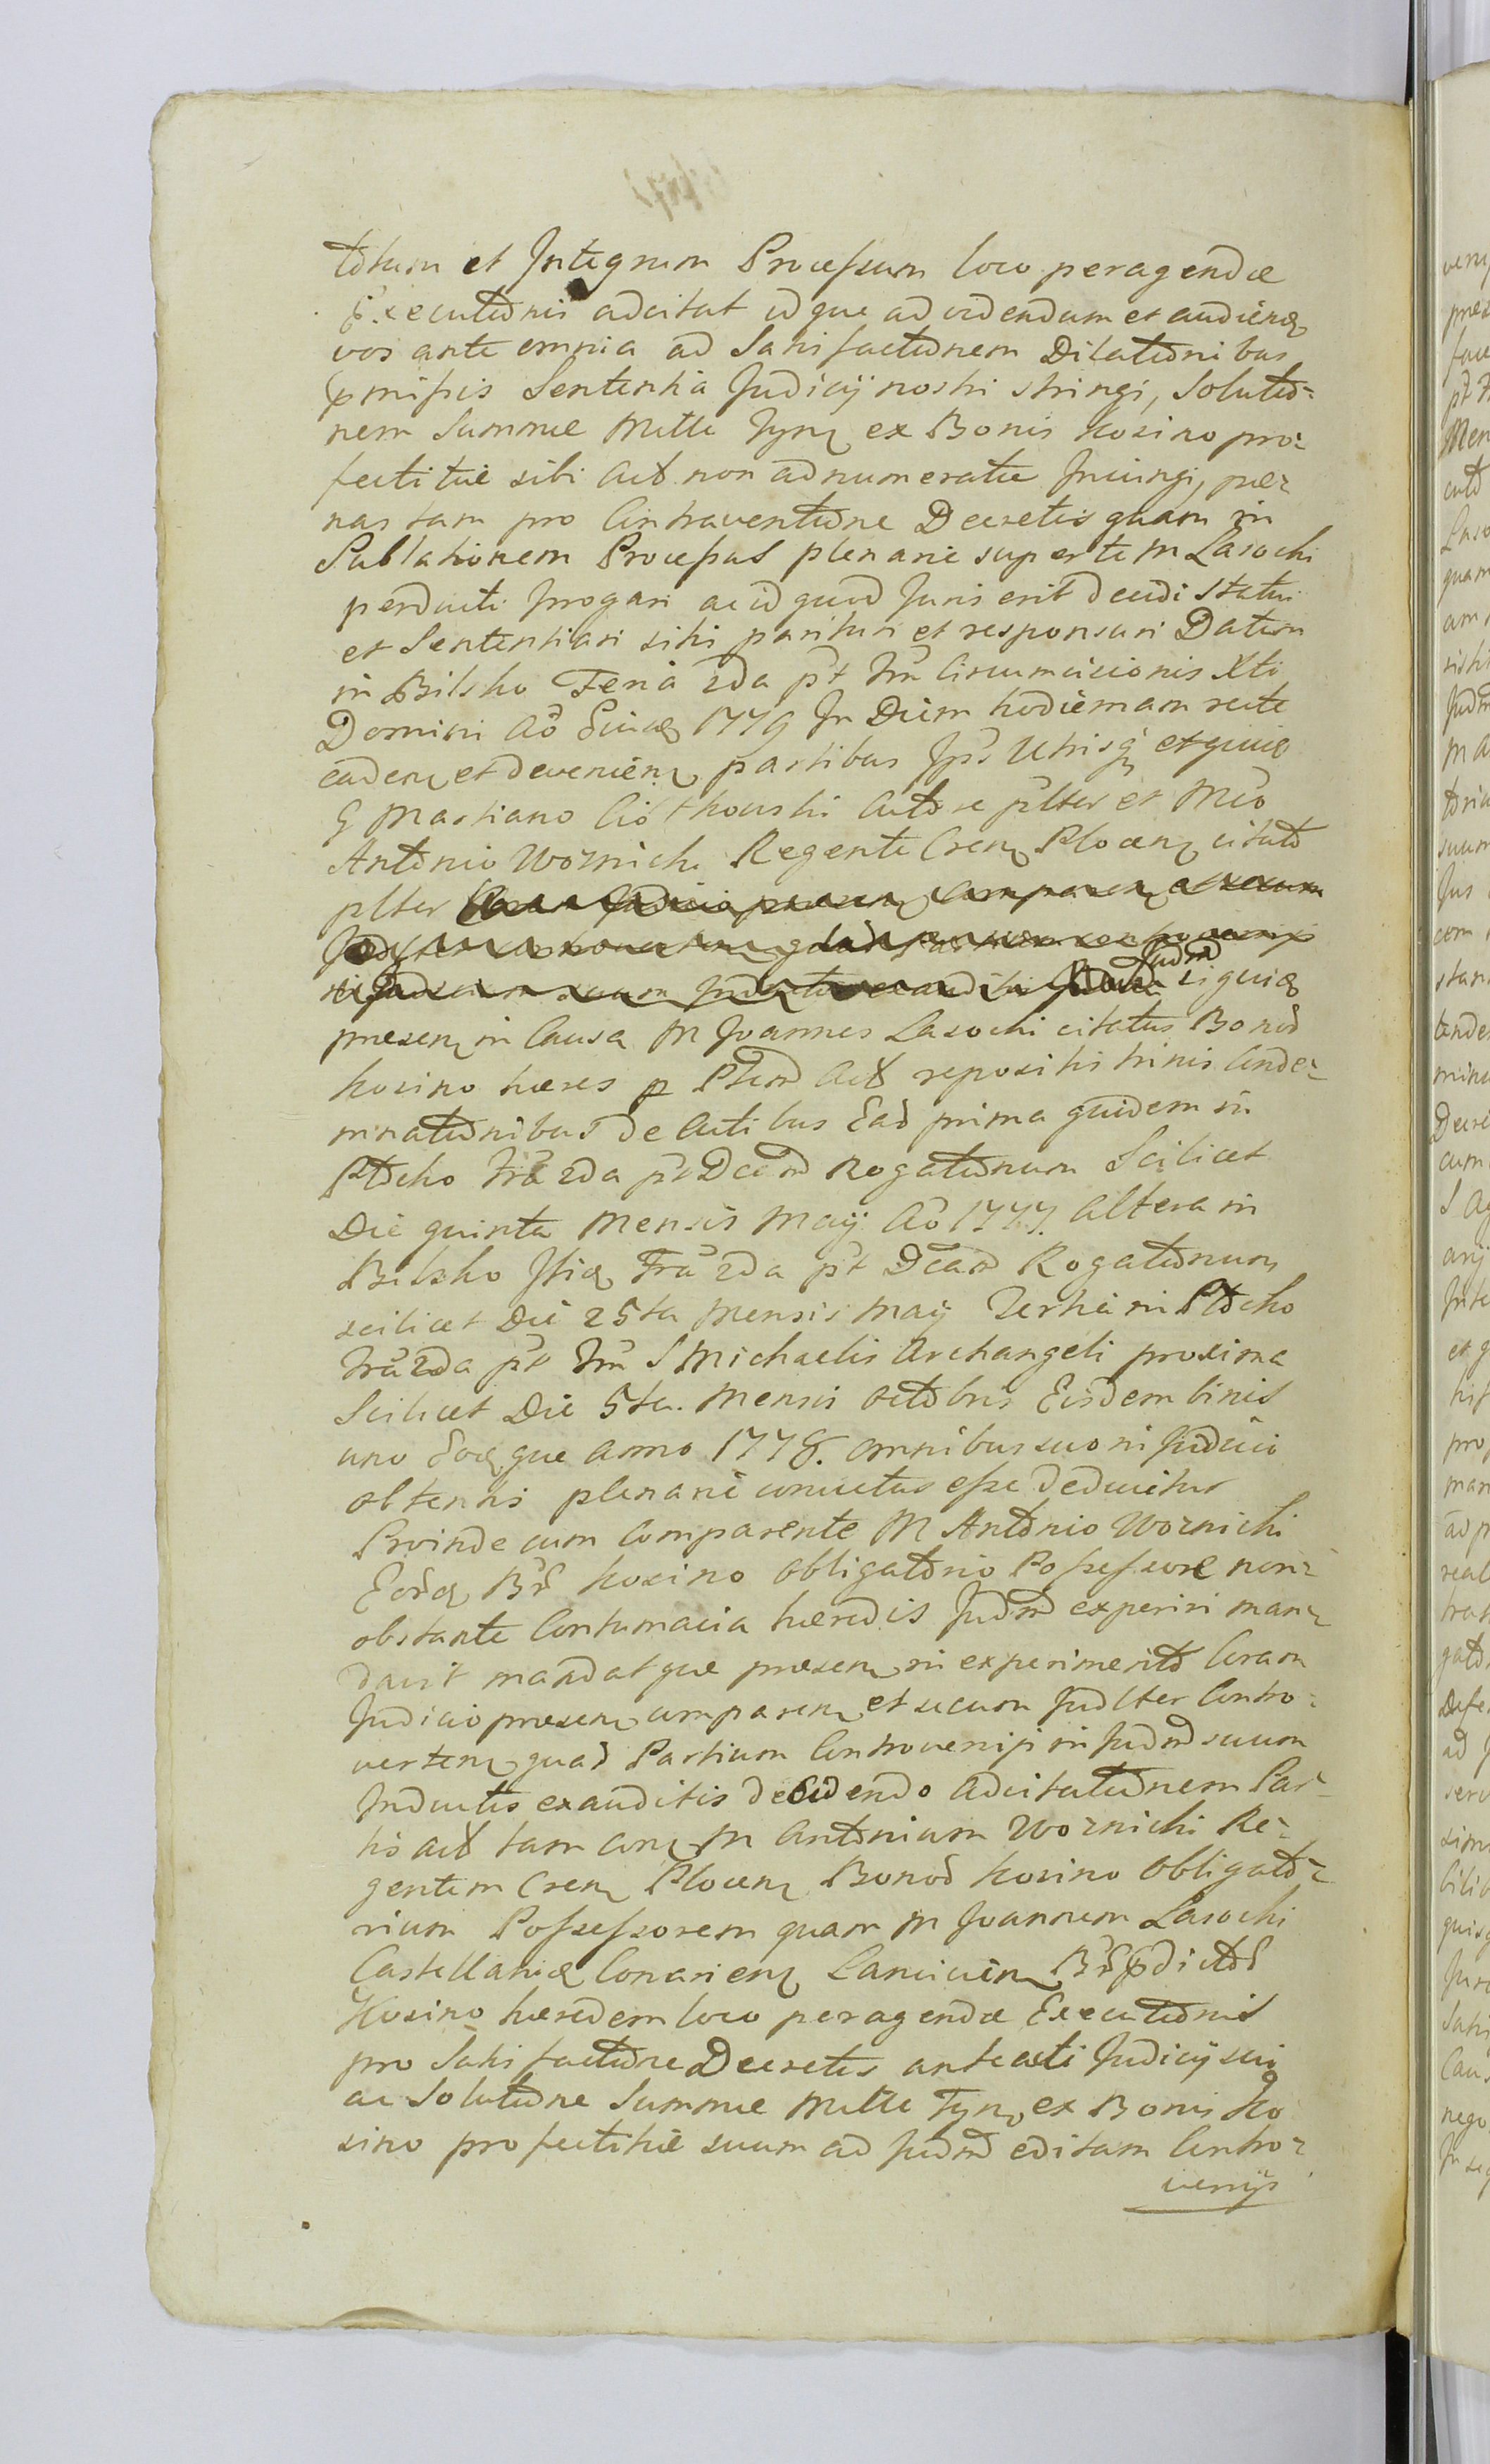 totum et Integrum Processum loco peragendæ
Executionis adcitat idque ad videndum et audiend
vos ante omnia ad Satisfactionem Dilationibus
præmissis Sententia Judicij nostri stringi, Solutio=
nem Summæ Mille Tyn ex Bonis Kosino pro=
fectitiæ sibi Act non adnumeratæ Iniungi, pæ=
nas tam pro Contraventione Decretis quam in
Sublationem Processus plenarie super te M Lasocki
perducti Irrogari ac id quod Juris erit decidi Statui
et Sententiari sitis parituri et responsuri Datum
in Bilsko Feria 2da pt Fm Circumcisionis Xti
Domini Ao Eiusd 1779 In Diem hodiernam recte
caden et devenien partibus Ips Utrisq et quid
G Martiano Ciołkowski Actore plter et Mco
Antonio Woznicki Regente Cren Plocen citato
plter
Judm siquid
præsen in Causa M Joannes Lasocki citatus Bonor
Kosino hæres p Pten Act repositis trinis Conde=
mnationibus de Actibus Ead prima quidem in
Plocko Fria 2da pt Dcam Rogationum Scilicet
Die quinta Mensis Maij Ao 1777. altera in
Bilsko Itid Fria 2da pt Dcam Rogationum
scilicet Die 25ta Mensis Maij Tertia in Plocko
Fria 2da pt Fm S Michaelis Archangeli proxima
Scilicet Die 5ta. Mensis octobris Eisdem binis
uno Eodque anno 1778. omnibus suo in Judicio
obtentis plenarie convictus esse deducitur
Proinde cum Comparente M Antonio Woznicki
Eord Br Kosino obligatorio Possessore non=
obstante Contumacia hæredis Judm experiri man=
davit mandatque præsen in experimento Coram
Judicio præsen comparen et secum Judlter Contro=
verten quad Partium Controversijs in Judm suum
Inductis exauditis decidendo adcitationem Par=
tis act tam con M Antonium Woznicki Re=
gentem Cren Plocen Bonor Kosino Obligato=
rium Possessorem quam M Joannem Lasocki
Castellanid Conarien Lancicien Br prædictor
Kosino hæredem loco peragendæ Executionis
pro Satisfactione Decretis anteacti Judicij sui
ac Solutione Summæ Mille Tyn ex Bonis Ko
sino profectitiæ suum ad Judm editam Contro=
versijs